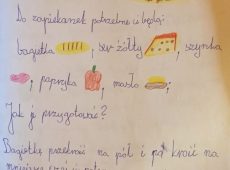 Do zapiekanek potrzebne będą:
bagietka, ser żółty, szynka
, papryka, masło,
Jak je przygotować?
Bagietkę przekroić na pół i pokroić na